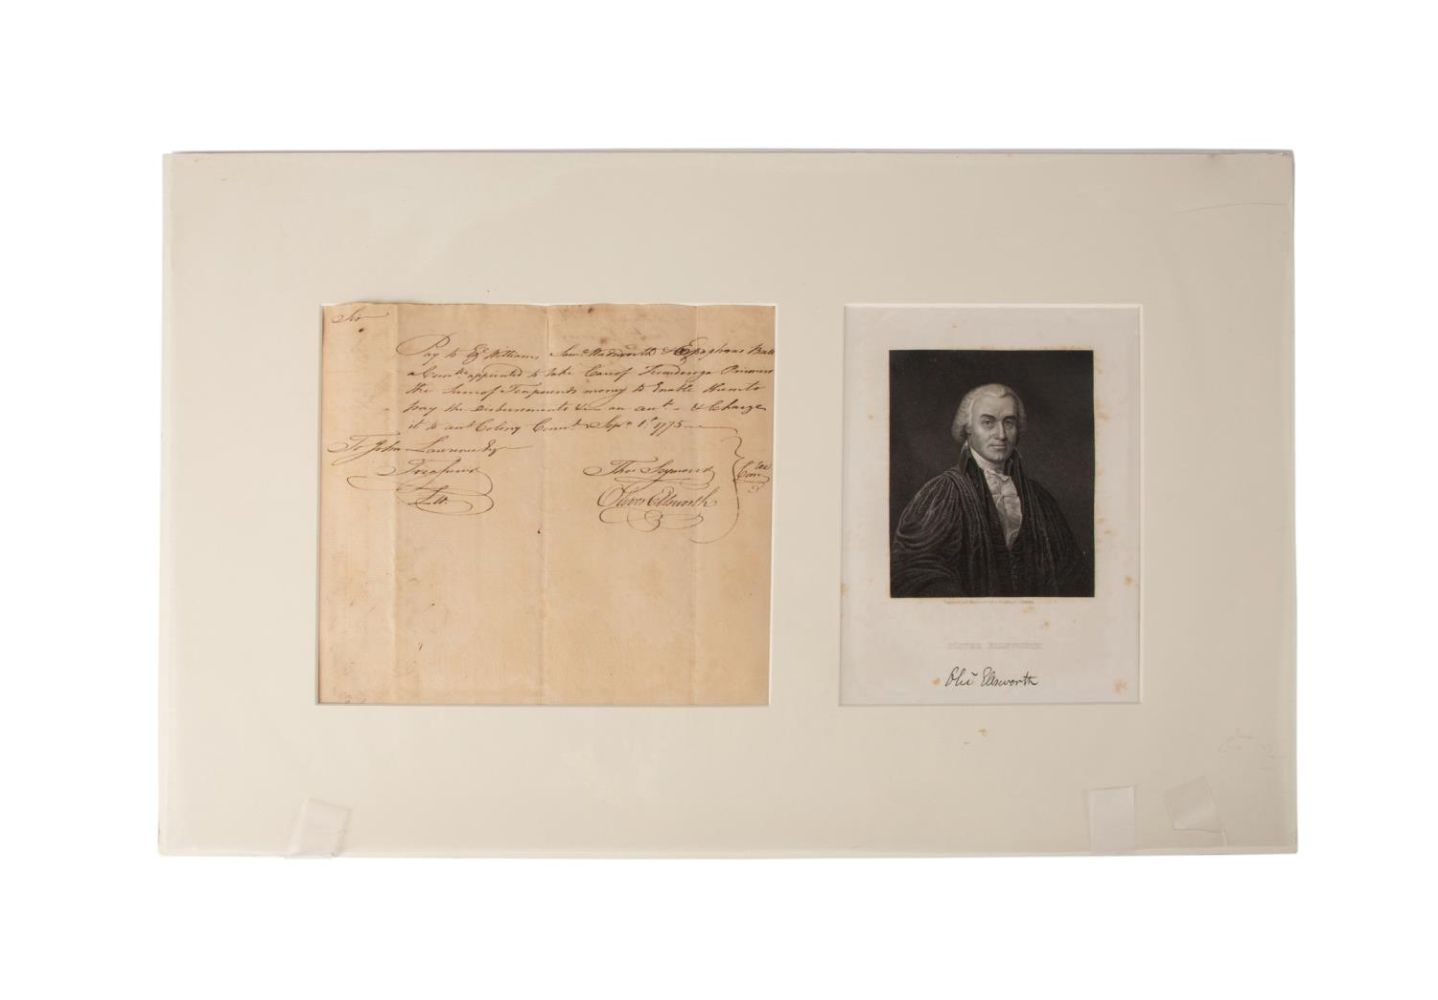 Sir
Pay to Ezl Williams, Saml Wadsworth & Epaphras Bull
a Comtte appointed to take Care of Ticonderoga Prisoners
the Sum of Ten pounds money to Enable them to
pay the disbursements on act & Charge
it to act Colony Connt Sepr 1st 1775
To John Lawrence Esqr
Treasurer
Thos Seymour
Oliver Ellsworth
Comtee
OLIVER ELLSWORTH
Olivr Ellsworth